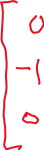 0
-1
0